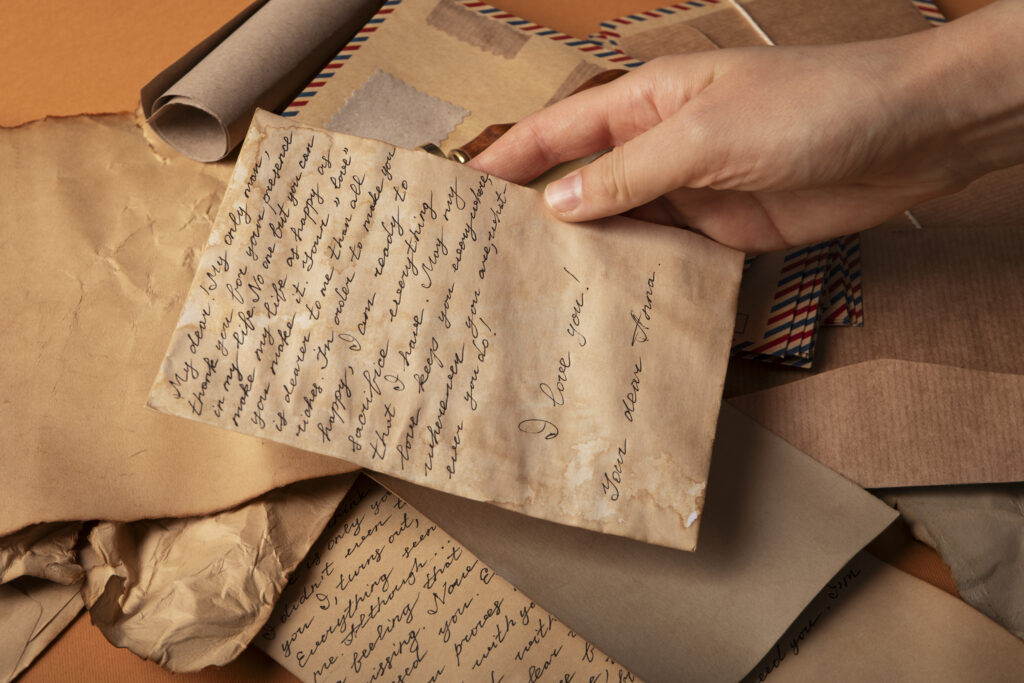 My dear! My only mom,
thank you for your presence
in my life. No one but you can
make my life as happy as
you make it. Your "love"
is dearer to me than all
riches. In order to make you
happy, I am ready to
sacrifice everything
that I have. May my
love keeps you everywhere,
wherever you are, what
ever you do!
I love you!
Your dear Anna.
is only you
didn't even t
you I, turns out,
Everything seen
me. Although...
feeling that
missing. None
you. E
you proves
with you
with
lear b
eed you. I'm